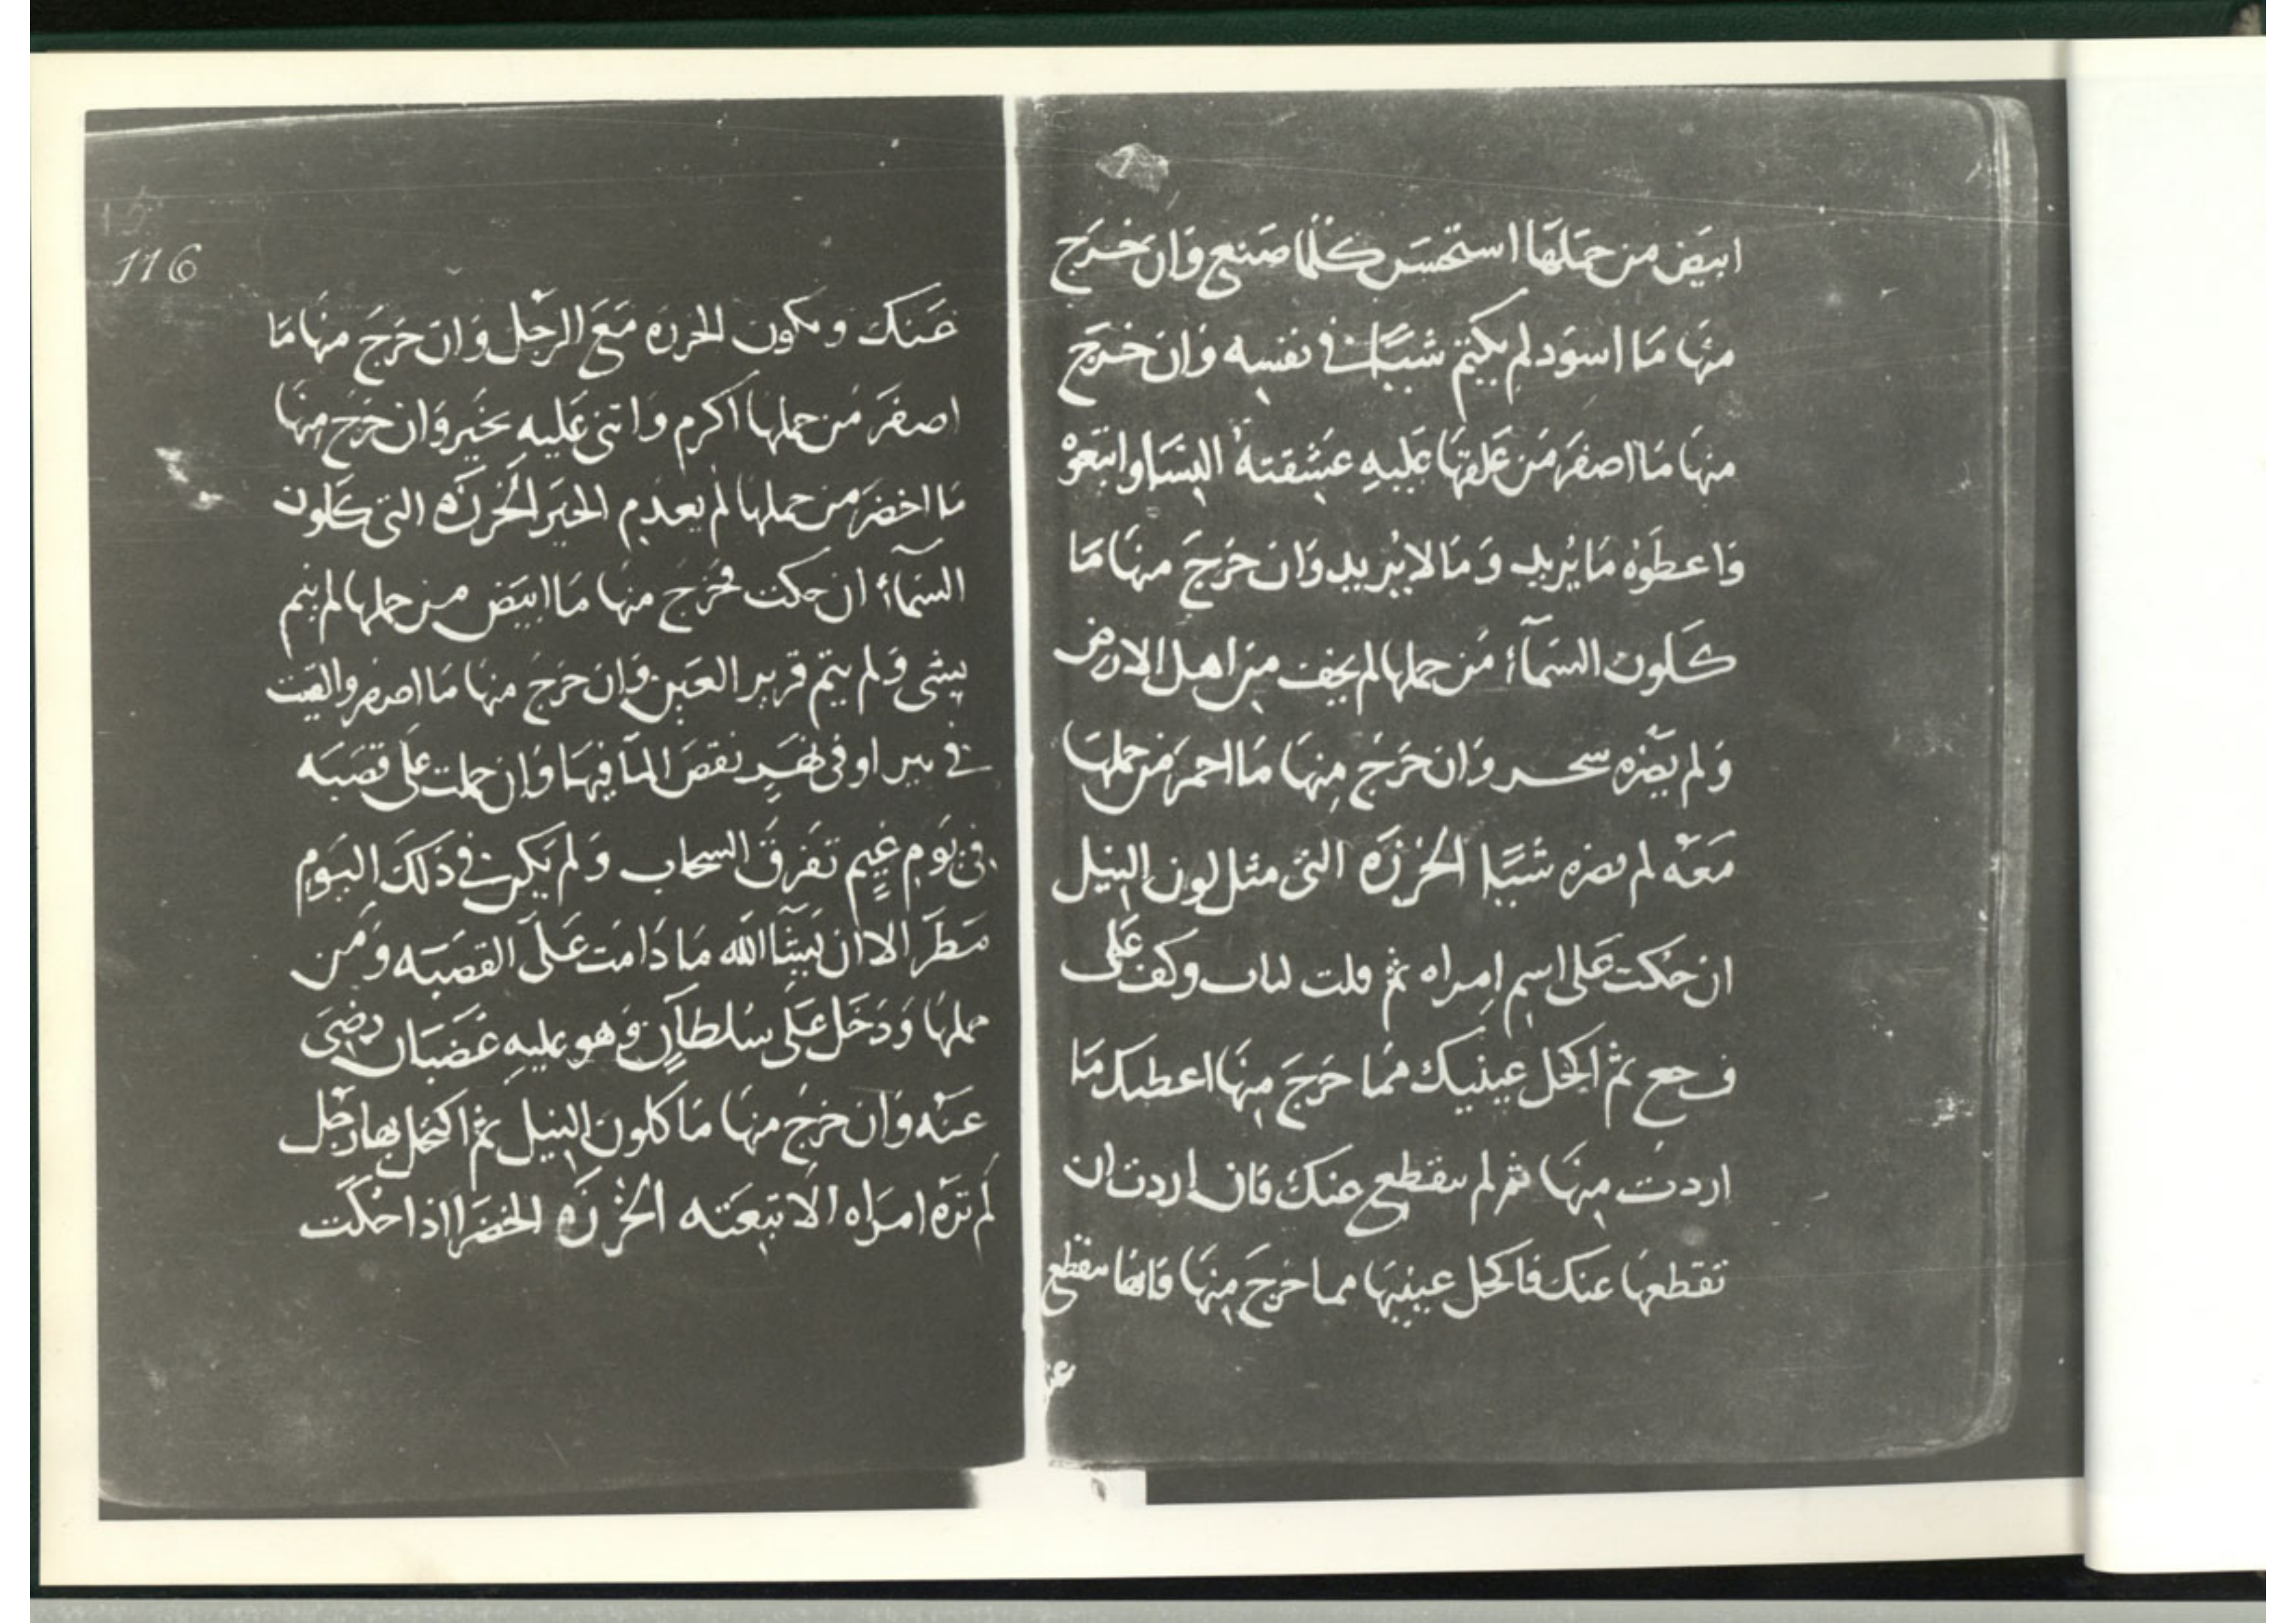 ابيَض من حَملهَا استحسَن كُلما صَنع وَان خَرج
منهَا مَا اسوَد لم يكتم شيًا في نفسِه وَان خَرَج
منهَا مَا اصفَرَ مَن عَلقهَا عَليهِ عَشقتهُ النِسَا واتبعَوْ
وَاعطَوهُ مَا يُرِيد وَمَا لا يُريد وَانَ خَرَجَ منهَا مَا
كَلون السَمآءُ مَن حملها لم يخف مِن اهل الارض
وَلم يضرَه سحر وَان خَرَجَ مِنهَا مَا احمرَ مَن حملهَا
مَعَه لم يضره شيًا الخَرزَه التى مثل لون النِيل
ان حُكت عَلى اسم اِمراه ثم قلت وكف عَلى
ثم اكحَل عينيك ممَا خَرَجَ مِنهَا اعطتك مَا
اردتَ مِنهَا ثم لم ينقطع عنكَ فَان اردت ان
تقطعهَا عنكَ فاكحل عينيهَا مما خرجَ مِنهَا فَانهَا تنقطع
عن
116
عَنك وتكون الخرزه مَعَ الرجُل وَانَ خَرَجَ منهَا مَا
اصفَرَ مَن حملهَا اكرم وَاثنى عَليهِ بخَير وَان خَرَجَ مِنهَا
مَا اخضَرَ من حملهَا لم يعدم الخيَر الخَرزَه التى كَلون
السَمآءُ ان حكت فخَرَجَ منهَا مَا ابيَض من حملهَا لم يتم
بشى وَلم يتم قرير العَين وَان خَرَجَ منهَا مَا اصفر والقيت
في بير او في نهَرٍ نقصَ المآ فيهَا وَان حملت عَلى قصَبَه
في يَومِ غيمٍ تَفرَقَ السحاب وَلم يَكن في ذَلكَ اليَومِ
مَطَرَ الا ان يَشَآ الله مَا دَامَت عَلى القصَبَه وَمَن
حملهَا وَدَخَل عَلى سُلطانٍ وَهو عليهِ غَضبَان رضىَ
عَنه وَان خرجَ منهَا مَا كلون النيل ثم اكتحل بها رَجُل
لم ترَه امرَاه الا تبِعَته الخَرزَه الخضرَا اذا حُكَت